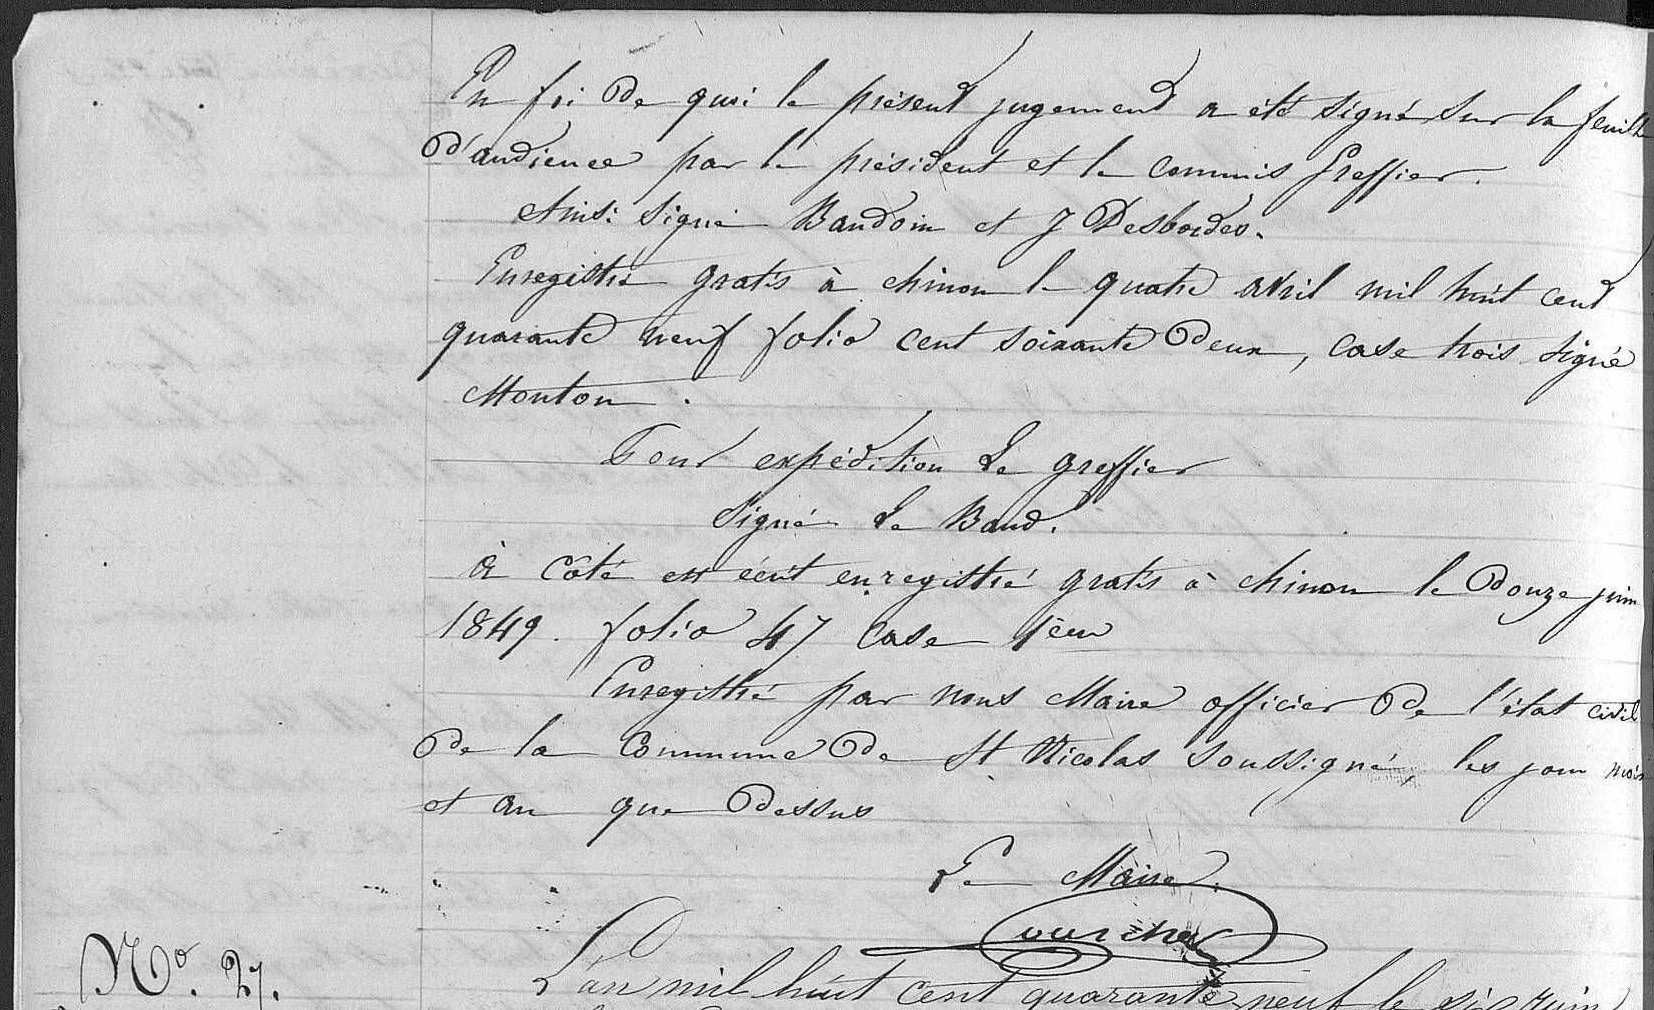 En foi de quoi le présent jugement a été signé sur la feuille
d'audience par le président et le commis Greffier.
Ainsi signé Baudoin et J Desbordes.
Enregistré gratis à chinon le quatre avril mil huit cent
quarante neuf folio cent soixante deux, case trois signé
Mouton.
Pour expédition Le greffier
Signé Le Baud.
à côté est écrit enregistré gratis à chinon le douze juin
1849. folio 47 case 1ère
Enregistré par nous Maire officier de l'état civil
de la Commune de St Nicolas soussigné, les jour mois
et an que dessus
Le Maire.
No. 27.
L'an mil huit cent quarante neuf le six juin